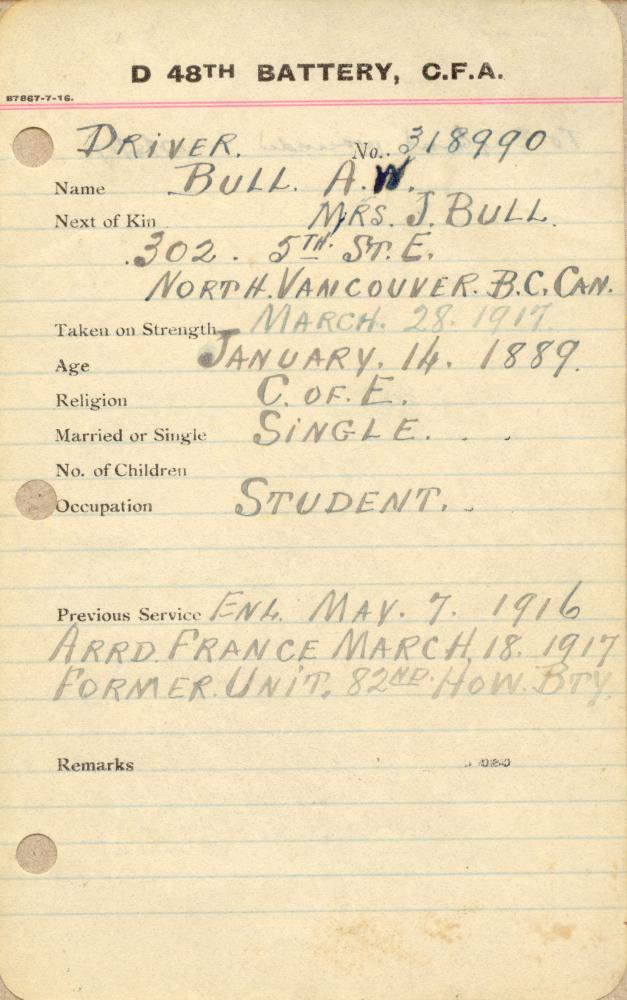 D 48TH BATTERY, C.F.A.
87867-7-16.
DRIVER. No. 318990
Name BULL. A.W.
Next of Kin MRS. J. BULL.
302. 5TH. ST. E.
NORTH. VANCOUVER. B.C. CAN.
Taken on Strength MARCH. 28. 1917.
Age JANUARY. 14. 1889.
Religion C. OF. E.
Married or Single SINGLE. . .
No. of Children
Occupation STUDENT. .
Previous Service ENL. MAY. 7. 1916
ARRD. FRANCE MARCH. 18. 1917
FORMER. UNIT. 82ND. HOW. BTY.
Remarks